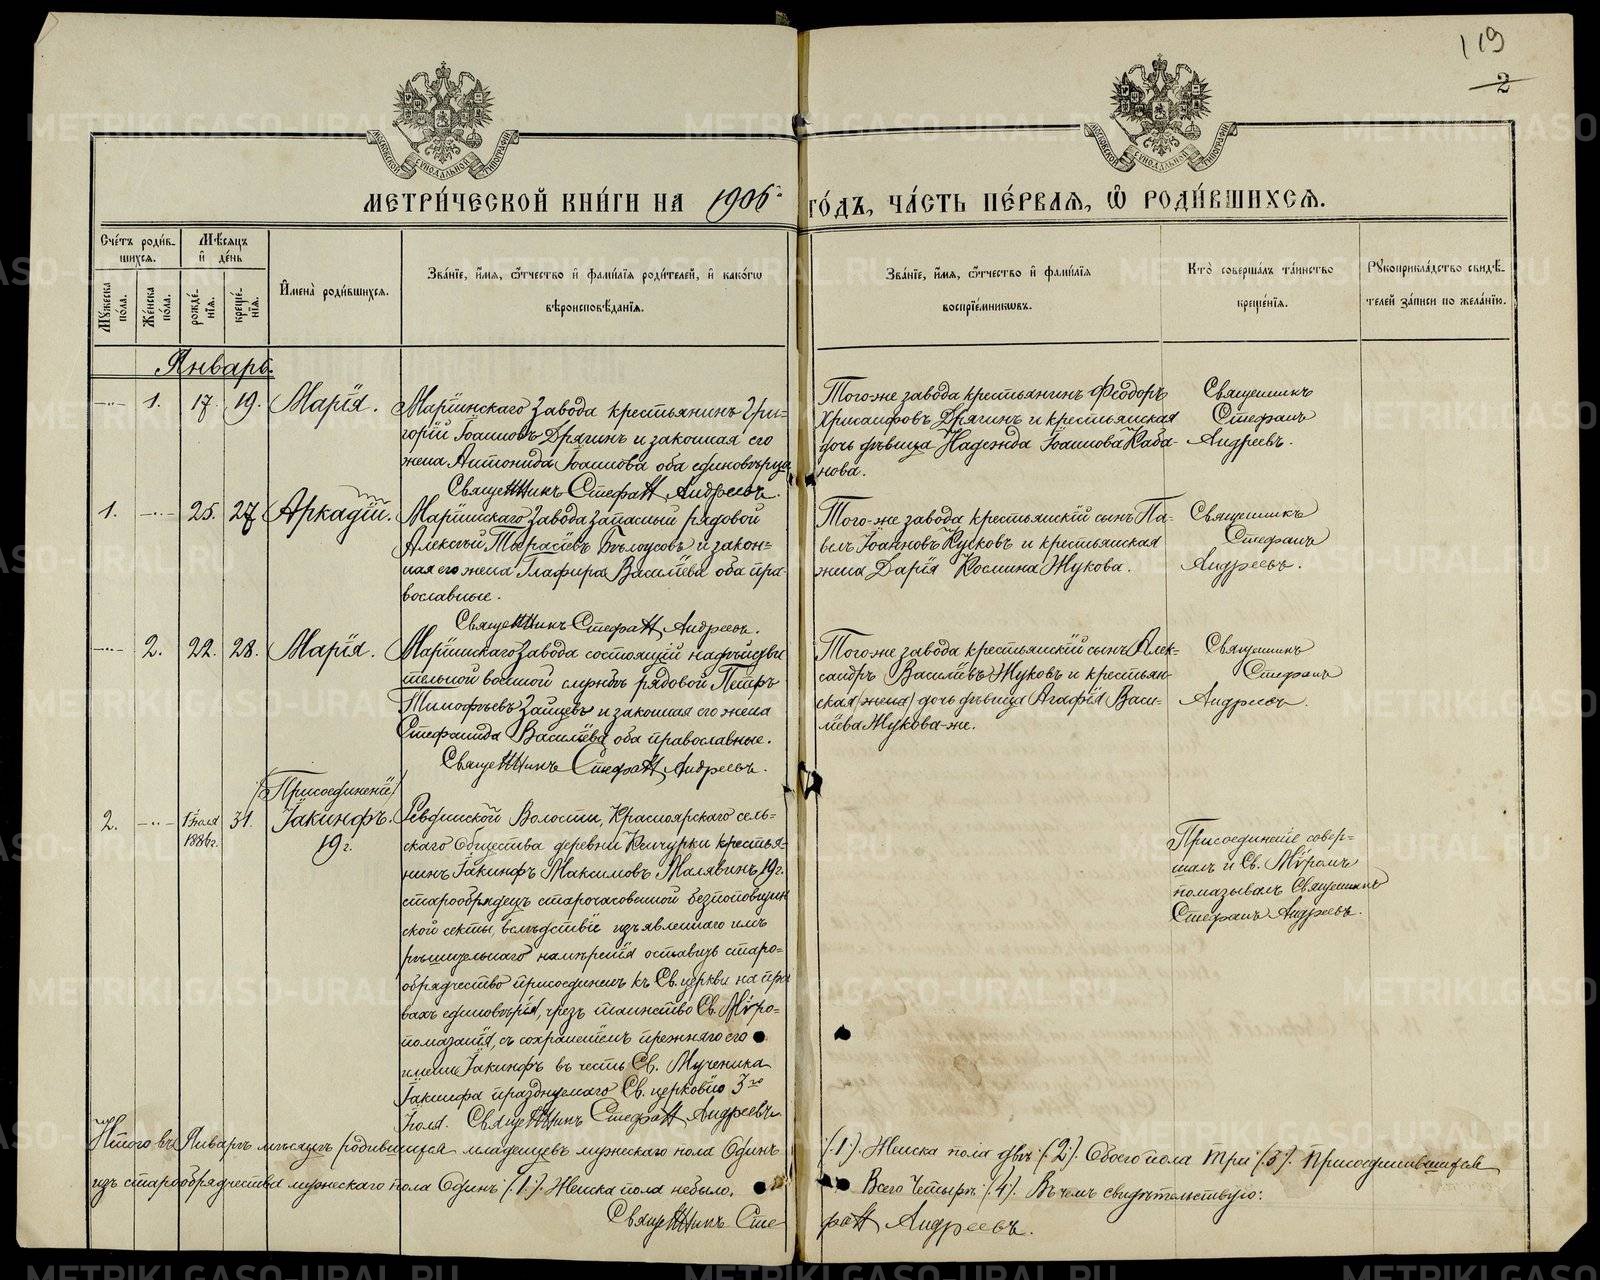 119
2
МОСКОВСКОЙ СУНОДАЛЬНОЙ ТИПОГРАФІИ
МОСКОВСКОЙ СУНОДАЛЬНОЙ ТИПОГРАФІИ
МЕТРИ́ЧЕСКОЙ КНИ́ГИ НА 1906й ГО́ДЪ, ЧА́СТЬ ПЕ́РВАЯ, Ѡ҆ РОДИ́ВШИХСЯ.
Сче́тъ роди́в-
шихся.
Му́жеска по́ла.
Же́нска по́ла.
Мѣ́сяцъ и҆ де́нь
рожде́-нїя.
креще́-нїя.
И҆мена̀ роди́вшихся.
Зва́нїе, и҆́мя, ѻ҆́тчество и҆ фами́лїя роди́телей, и҆ како́гѡ
вѣроисповѣ́данїя.
Зва́нїе, и҆́мя, ѻ҆́тчество и҆ фами́лїя
воспрїе́мникѡвъ.
Кто̀ соверша́лъ та́инство
креще́нїя.
Рꙋкоприкла́дство свидѣ́-
телей за́писи по жела́нїю.
Январь.
1. 17. 19. Марія.
Маріинскаго завода крестьянинъ Гри-
горій Іоанновъ Дрягинъ и законная его
жена Антонида Іоаннова оба единовѣрцы
Священникъ Стефанъ Андреевъ.
Того-же завода крестьянинъ Феодоръ
Хрисанфовъ Дрягинъ и крестьянская
дочь дѣвица Надежда Іоаннова Каба-
нова.
Священникъ
Стефанъ
Андреевъ.
1. 25. 27. Аркадій.
Маріинскаго завода запасный рядовой
Алексѣй Тарасіевъ Бѣлоусовъ и закон=
ная его жена Глафира Василіева оба пра-
вославные.
Священникъ Стефанъ Андреевъ.
Того-же завода крестьянскій сынъ Па-
велъ Іоанновъ Кусковъ и крестьянская
жена Дарія Космина Жукова.
Священникъ
Стефанъ
Андреевъ.
2. 22. 28. Марія.
Маріинскаго завода состоящій на дѣйстви
тельной военной службѣ рядовой Петръ
Тимофѣевъ Зайцевъ и законная его жена
Стефанида Василіева оба православные.
Священникъ Стефанъ Андреевъ.
Того-же завода крестьянскій сынъ Алек-
сандръ Василіевъ Жуковъ и крестьян-
ская (жена) дочь дѣвица Агафія Васи-
ліева Жукова-же.
Священникъ
Стефанъ
Андреевъ.
(Присоединеніи)
2. 1 Іюля 1886г. 31. Іакинфъ.
19 г.
Ревдинской Волости, Красноярскаго сель-
скаго Общества деревни Кенчурки крестья-
нинъ Іакинфъ Максимовъ Малявинъ 19 г.
старообрядецъ старочасовенной безпоповщин
ской секты, вслѣдствіе изъявленнаго имъ
рѣшительнаго намѣренія оставить старо-
обрядчество присоединенъ къ Св. церкви на пра
вахъ единовѣрія, чрезъ таинство Св. Мѵро-
помазанія, съ сохраненіемъ прежняго его
имени Іакинфъ въ честь Св. Мученика
Іакинфа празднуемаго Св. церковію 3го
Іюля. Священникъ Стефанъ Андреевъ.
Присоединеніе совер-
шалъ и Св. Мѵромъ
помазывалъ Священникъ
Стефанъ Андреевъ.
Итого въ Январѣ мѣсяцѣ родившихся младенцевъ мужескаго пола Одинъ (1). Женска пола двѣ (2). Обоего пола три (3). Присоединившихся
изъ старообрядчества мужескаго пола Одинъ (1). Женска пола небыло. Всего Четыре (4). Въ чемъ свидѣтельствую:
Священникъ Стефанъ Андреевъ.